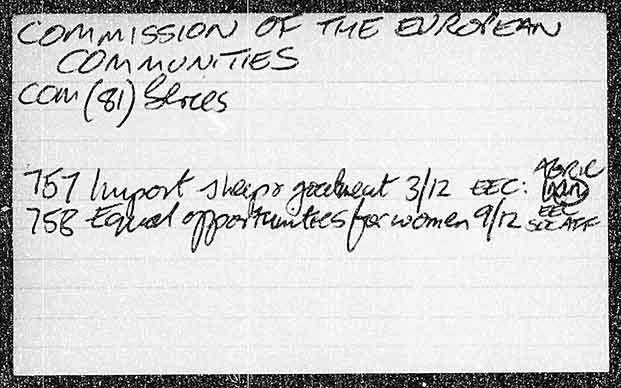 COMMISSION OF THE EUROPEAN
COMMUNITIES
COM (81) Series
757 Import sheep & goatmeat 3/12 EEC: AGRIC
758 Equal opportunities for women 9/12 EEC
SOC AFF